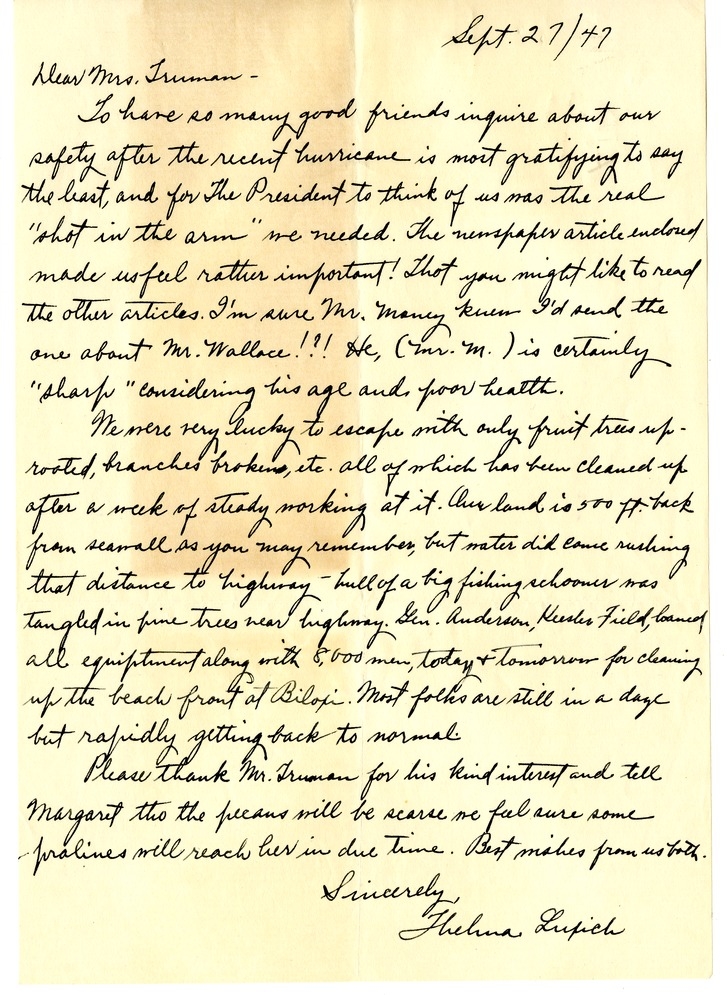 Sept. 27/47
Dear Mrs. Truman -
To have so many good friends inquire about our
safety after the recent hurricane is most gratifying to say
the least, and for The President to think of us was the real
"shot in the arm" we needed. The newspaper article enclosed
made us feel rather important! Thot you might like to read
the other articles. I'm sure Mr. Maney knew I'd send the
one about Mr. Wallace!?! He, (Mr. M.) is certainly
"sharp" considering his age and poor health.
We were very lucky to escape with only fruit trees up-
rooted, branches broken, etc. all of which has been cleaned up
after a week of steady working at it. Our land is 500 ft. back
from seawall as you may remember, but water did come rushing
that distance to highway - hull of a big fishing schooner was
tangled in pine trees near highway. Gen. Anderson, Keesler Field, loaned
all equiptment along with 8,000 men, today & tomorrow for cleaning
up the beach front at Biloxi. Most folks are still in a daze
but rapidly getting back to normal.
Please thank Mr. Truman for his kind interest and tell
Margaret tho the pecans will be scarse we feel sure some
pralines will reach her in due time. Best wishes from us both.
Sincerely,
Thelma